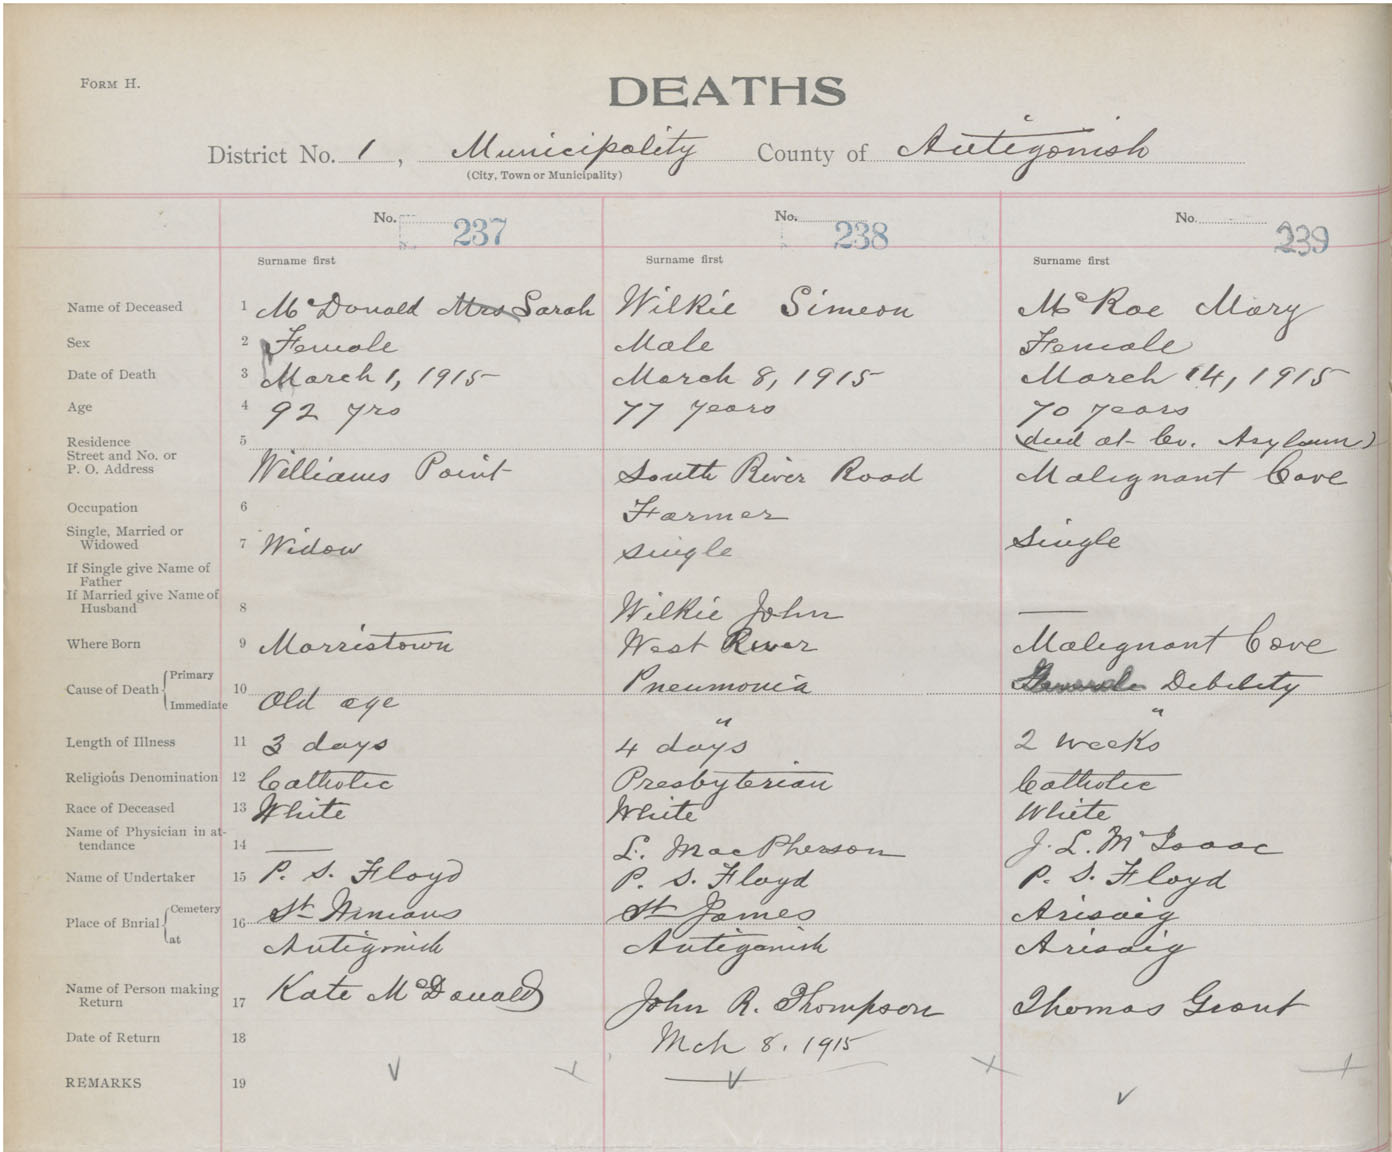 FORM H.
DEATHS
District No. 1, Municipality County of Antigonish
(City, Town or Municipality)
No. 237 No. 238 No. 239
Surname first Surname first Surname first
Name of Deceased 1 McDonald Mrs Sarah Wilkie Simeon McRae Mary
Sex 2 Female Male Female
Date of Death 3 March 1, 1915 March 8, 1915 March 14, 1915
Age 4 92 yrs 77 years 70 years
Residence 5 (died at Co. Asylum)
Street and No. or
P. O. Address Williams Point South River Road Malignant Cove
Occupation 6 Farmer
Single, Married or
Widowed 7 Widow single Single
If Single give Name of
Father
If Married give Name of
Husband 8 Wilkie John —
Where Born 9 Morristown West River Malignant Cove
Cause of Death { Primary
10 Pneumonia General Debility
Immediate Old age " "
Length of Illness 11 3 days 4 days 2 weeks
Religious Denomination 12 Catholic Presbyterian Catholic
Race of Deceased 13 White White White
Name of Physician in at-
tendance 14 — L. MacPherson J. L. McIsaac
Name of Undertaker 15 P. S. Floyd P. S. Floyd P. S. Floyd
Place of Burial { Cemetery 16 St Ninians St James Arisaig
at Antigonish Antigonish Arisaig
Name of Person making
Return 17 Kate McDonald John R. Thompson Thomas Grant
Date of Return 18 Mch 8. 1915
REMARKS 19